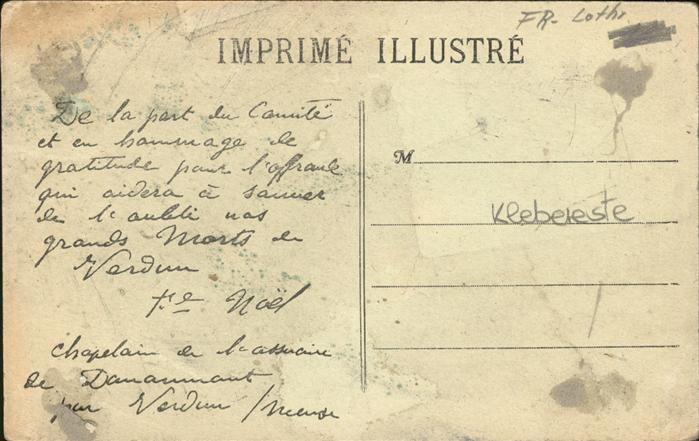 FR- Lothr
IMPRIMÉ ILLUSTRÉ
De la part du Comité
et en hommage de
gratitude pour l'offrande
qui aidera à sauver
de l'oubli nos
grands Morts de
Verdun
Noël
chapelain de l'ossuaire
de Douaumont
par Verdun / Meuse
M
Klebereste